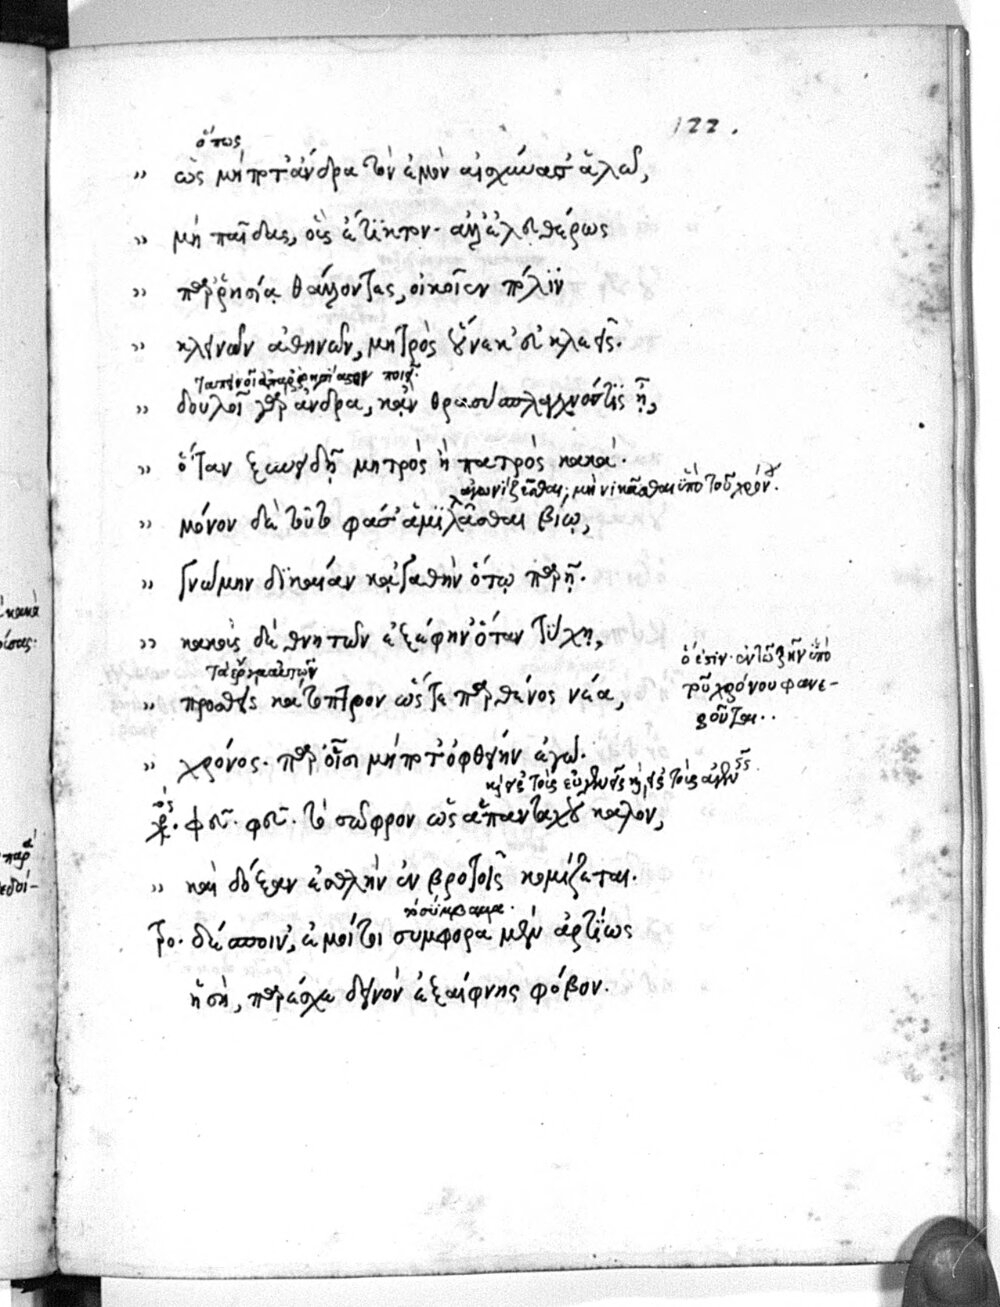 122.
ὅπως
" ὡς μήποτ' ἄνδρα τὸν ἐμὸν αἰσχύνασ' ἁλῶ,
" μὴ παῖδας, οὓς ἔτικτον· ἀλλ' ἐλεύθερως
" παρρησίᾳ θάλλοντες, οἰκοῖεν πόλιν
" κλεινῶν ἀθηνῶν, μητρὸς οὕνεκ' εὐκλεεῖς.
ποιεῖ
" δουλοῖ γὰρ ἄνδρα, κἂν θρασύσπλαγχνός τις ᾖ,
" ὅταν ξυνειδῇ μητρὸς ἢ πατρὸς κακά.
ἀγωνίζεσθαι, μὴ νικᾶσθαι ὑπὸ τοῦ χρόνου.
" μόνον δὲ τοῦτό φασ' ἁμιλλᾶσθαι βίῳ,
" γνώμην δικαίαν κἀγαθὴν ὅτῳ παρῇ.
" κακοὺς δὲ θνητῶν ἐξέφην' ὅταν τύχῃ,
τὰ ἔργα αὐτῶν
" προσθεὶς κάτοπτρον ὥστε παρθένος νέα,
ὅ ἐστιν· ἐν τῷ ζῆν ὑπὸ
τοῦ χρόνου φανε-
ροῦται..
" χρόνος· παρ' οἷσι μήποτ' ὀφθείην ἐγώ.
χορός. φεῦ φεῦ· τὸ σῶφρον ὡς ἁπανταχοῦ καλόν,
" καὶ δόξαν ἐσθλὴν ἐν βροτοῖς κομίζεται.
σύμβαμα.
τρο. δέσποιν', ἐμοί τοι συμφορὰ μὲν ἀρτίως
ἡ σὴ, παρέσχε δεινὸν ἐξαίφνης φόβον.